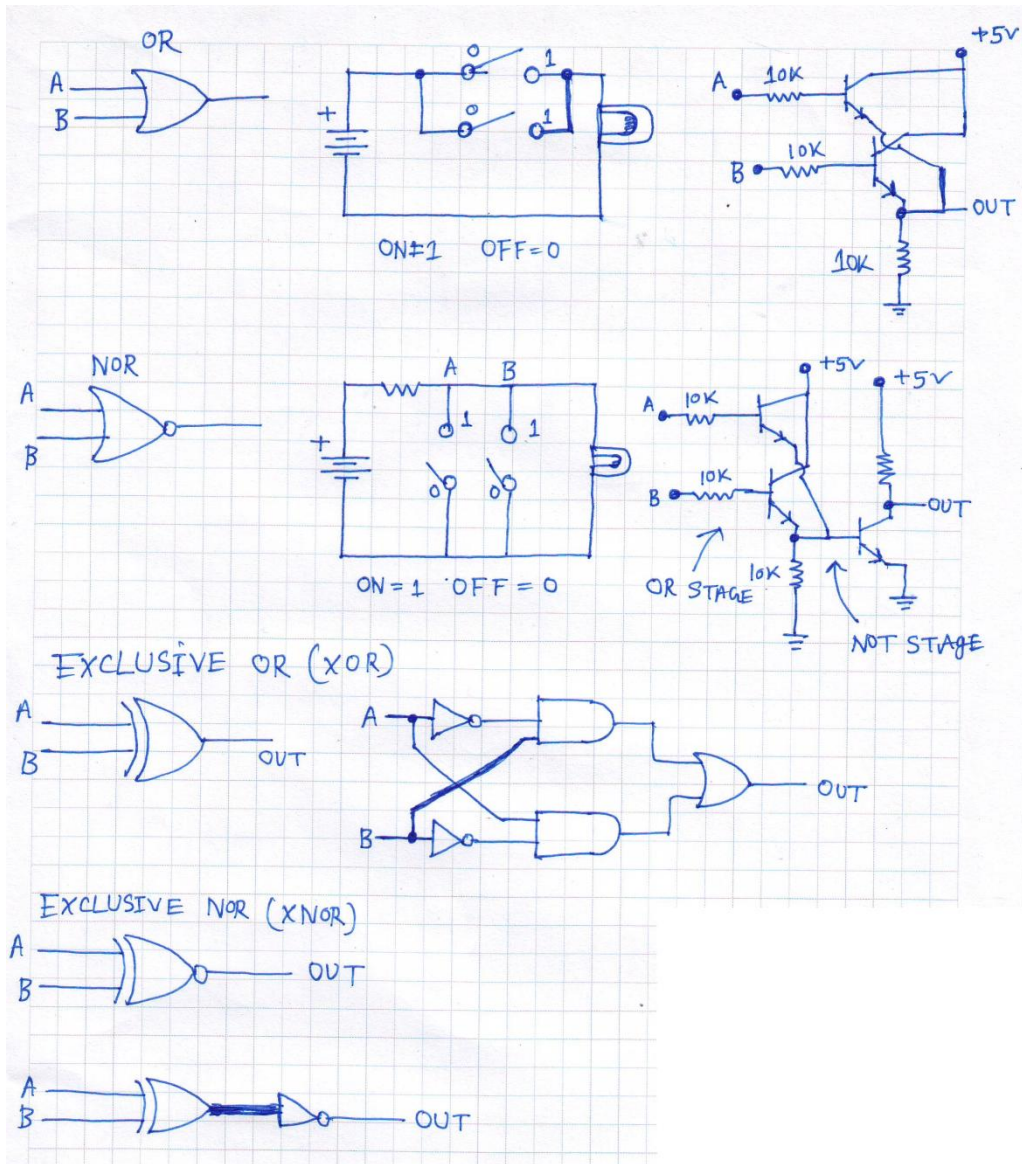 OR
A
B
+
0 1
0 1
ON=1 OFF=0
+5V
A 10K
B 10K
OUT
10K
NOR
A
B
+
A B
1 1
0 0
ON=1 OFF=0
+5V +5V
A 10K
B 10K
OUT
10K
OR STAGE
NOT STAGE
EXCLUSIVE OR (XOR)
A
B
OUT
A
B
OUT
EXCLUSIVE NOR (XNOR)
A
B
OUT
A
B
OUT